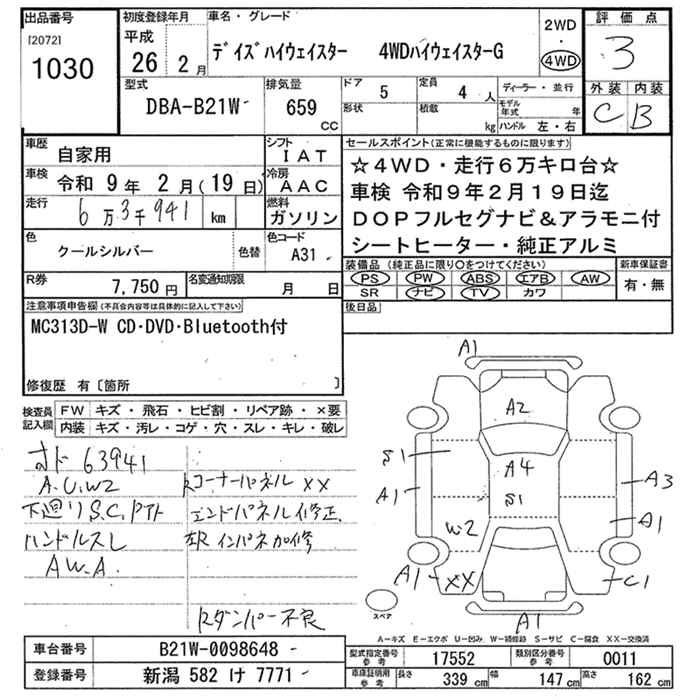 出品番号
[2072]
1030
初度登録年月
平成
26 2 月
車名・グレード
デイズハイウェイスター 4WDハイウェイスターG
2WD
・
4WD
評価点
3
外装 内装
C B
型式
DBA-B21W
排気量
659
cc
ドア
5
形状
定員
4 人
積載
kg
ディーラー・並行
モデル年式 年
ハンドル 左・右
車歴
自家用
シフト
IAT
車検 令和 9年 2月(19日)
冷房
AAC
走行 6万3千941 km
燃料
ガソリン
色
クールシルバー
色替
色コード
A31
R券 7,750円
名変通知期限 月 日
セールスポイント(正常に機能するものに限ります)
☆4WD・走行6万キロ台☆
車検 令和9年2月19日迄
DOPフルセグナビ&アラモニ付
シートヒーター・純正アルミ
装備品(純正品に限り〇をつけてください)
新車保証書
PS PW ABS エアB AW
SR ナビ TV カワ
有・無
後日品
注意事項申告欄(不具合内容等は具体的に記入して下さい)
MC313D-W CD・DVD・Bluetooth付
修復歴 有〔箇所 〕
検査員
記入欄
FW キズ・飛石・ヒビ割・リペア跡・×要
内装 キズ・汚レ・コゲ・穴・スレ・キレ・破レ
オド 63941
A.U.W2
下廻りS.C.
ハンドルスレ
AW.A
Rコーナーパネル XX
エンドパネル修正
左Rインパネ加修
Rダンパー不良
A1
A2
S1
A4
A1
S1
A3
A1
W2
A1
XX
C1
A1
スペア
A―キズ E―エクボ U―凹み W―補修跡 S―サビ C―腐食 XX―交換済
車台番号 B21W-0098648
登録番号 新潟 582 け 7771
型式指定番号
参考
17552
類別区分番号
参考
0011
車庫証明用
参考
長さ 339 cm
幅 147 cm
高さ 162 cm